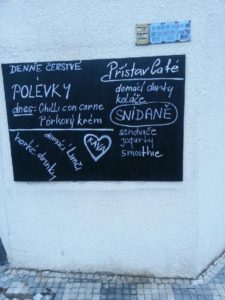 DENNĚ ČERSTVÉ
POLÉVKY
dnes: Chilli con carne
Pórkový krém
domácí
horké drinky
KÁVA
Přístav Café
domácí dorty
koláče
SNÍDANĚ
sendviče
jogurty
smoothie